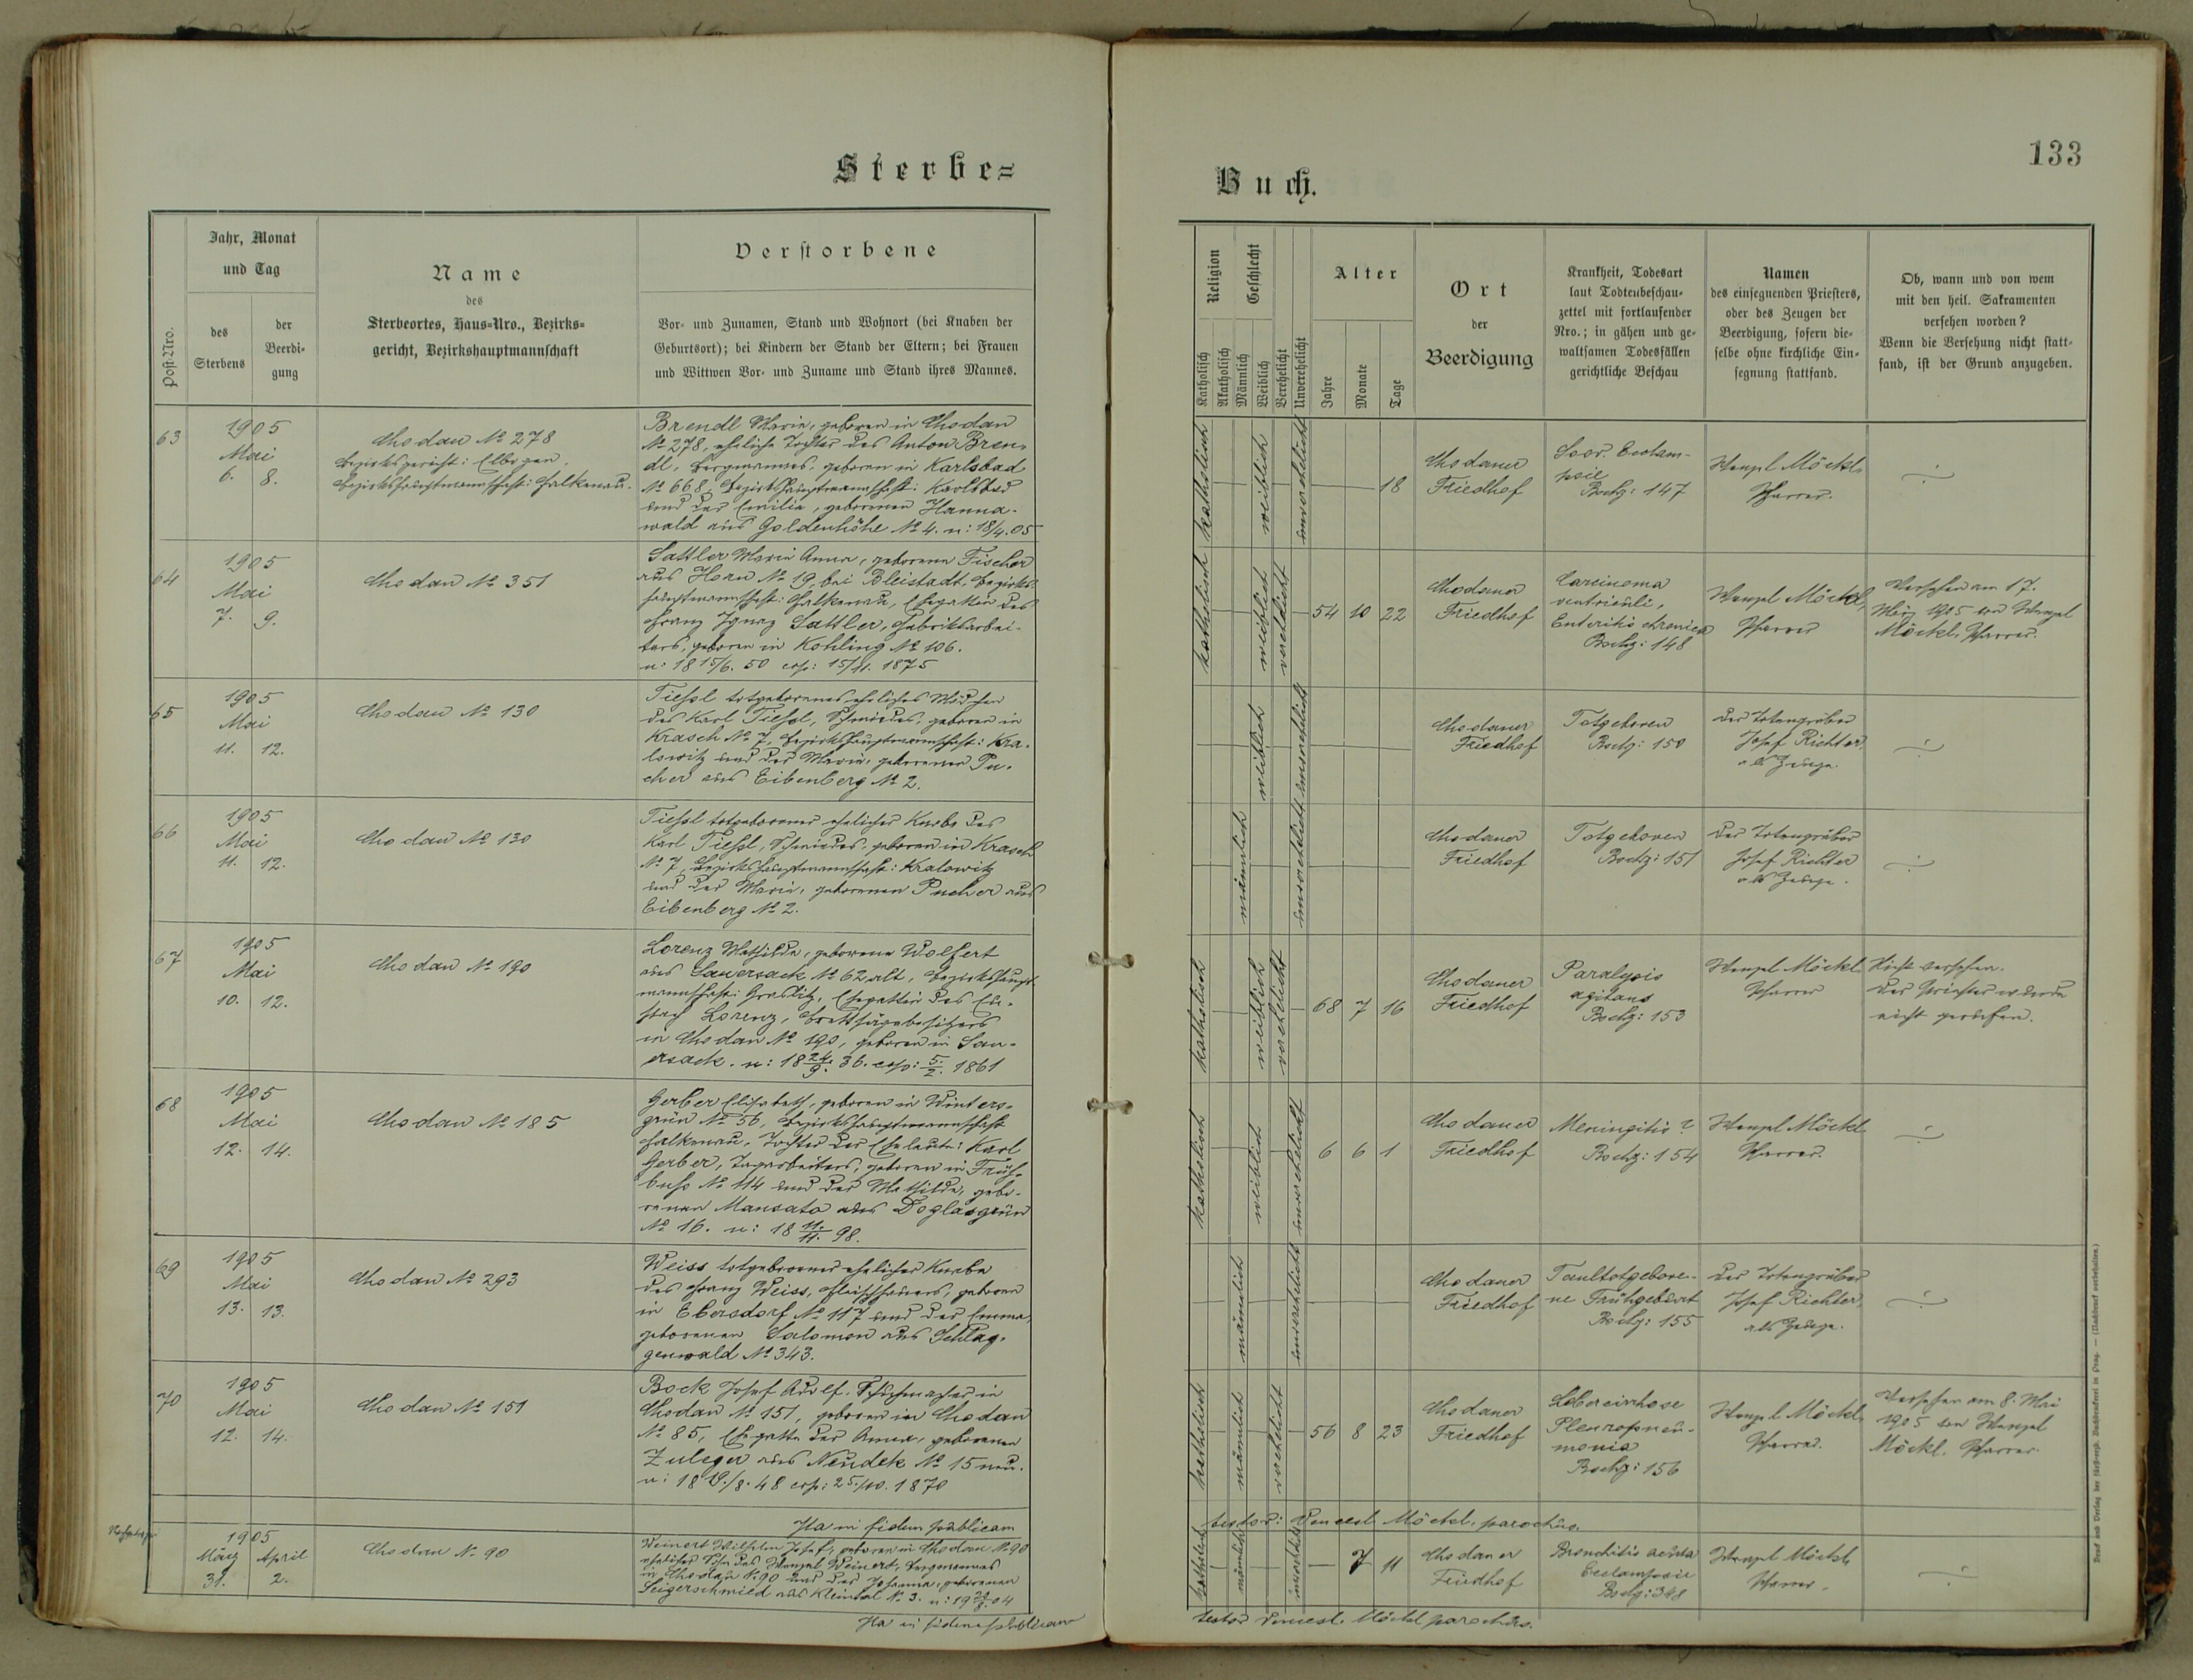 Sterbe=
Jahr, Monat
und Tag
Post-Nro.
des
Sterbens
der
Beerdi-
gung
Name
des
Sterbeortes, Haus=Nro., Bezirks=
gericht, Bezirkshauptmannschaft
Verstorbene
Vor- und Zunamen, Stand und Wohnort (bei Knaben der
Geburtsort); bei Kindern der Stand der Eltern; bei Frauen
und Wittwen Vor- und Zuname und Stand ihres Mannes.
63
1905
Mai
6. 8.
Chodau № 278
Bezirksgericht: Elbogen.
Bezirkshauptmannschaft: Falkenau.
Brendl Marie, geboren in Chodau
№ 278, eheliche Tochter des Anton Bren-
dl, Bergmannes, geboren in Karlsbad
№ 668, Bezirkshauptmannschaft: Karlsbad
und der Emilie, geborenen Hanna-
wald aus Goldenhöhe № 4. n: 18/4.05
64
1905
Mai
7. 9.
Chodau № 351
Sattler Marie Anna, geborene Fischer
aus Horn № 19 bei Bleistadt, Bezirks-
hauptmannschaft: Falkenau, Ehegattin des
Franz Ignaz Sattler, Fabriksarbei-
ters, geboren in Kohling № 106.
n: 18 15/6. 50 cop: 15/11. 1875
65
1905
Mai
11. 12.
Chodau № 130
Tiessl totgeborenes eheliches Mädchen
des Karl Tiessl, Schmiedes, geboren in
Krasch № 7, Bezirkshauptmannschaft: Kra-
lowitz und der Marie, geborenen Pu-
cher aus Eibenberg № 2.
66
1905
Mai
11. 12.
Chodau № 130
Tiessl totgeborener ehelicher Knabe des
Karl Tiessl, Schmiedes, geboren in Krasch
№ 7, Bezirkshauptmannschaft: Kralowitz
und der Marie, geborenen Pucher aus
Eibenberg № 2.
67
1905
Mai
10. 12.
Chodau № 190
Lorenz Mathilde, geborene Wolfert
aus Sauersack № 62 alt, Bezirkshaupt-
mannschaft: Graslitz, Ehegattin des
Lorenz, Brettsägebesitzers
in Chodau № 190, geboren in Sau-
ersack. n: 18 24./9. 36. cop: 5./2. 1861
68
1905
Mai
12. 14.
Chodau № 185
Gerber Elisabeth, geboren in Winters-
grün № 56, Bezirkshauptmannschaft
Falkenau, Tochter der Eheleute: Karl
Gerber, Tagarbeiters, geboren in Früh-
buss № 114 und der Mathilde, gebo-
renen Mansato aus Doglasgrün
№ 16. n: 18 11./11. 98.
69
1905
Mai
13. 13.
Chodau № 293
Weiss totgeborener ehelicher Knabe
des Franz Weiss, Fleischhauers, geboren
in Ebersdorf № 117 und der Emma,
geborenen Salomon aus Schlag-
genwald № 343.
70
1905
Mai
12. 14.
Chodau № 151
Bock Josef Adolf, Schuhmacher in
Chodau № 151, geboren in Chodau
№ 85, Ehegatte der Anna, geborenen
Zuleger aus Neudek № 15 neu.
n: 18 19./8. 48 cop: 25./10. 1870
Ita in fidem publicam
1905
März April
31. 2.
Chodau N. 90
Weinert Wilhelm Josef, geboren in Chodau № 90
ehelicher Sohn des Wenzel Weinert, Bergmannes
in Chodau № 90 und der Johanna, geborenen
Seigerschmied aus Kleinthal № 3.
Ita in fidem publicam
Buch.
133
Religion
Katholisch
Akatholisch
Geschlecht
Männlich
Weiblich
Verehelicht
Unverehelicht
Alter
Jahre
Monate
Tage
Ort
der
Beerdigung
Krankheit, Todesart
laut Todtenbeschau-
zettel mit fortlaufender
Nro.; in gähen und ge-
waltsamen Todesfällen
gerichtliche Beschau
Namen
des einsegnenden Priesters,
oder des Zeugen der
Beerdigung, sofern die-
selbe ohne kirchliche Ein-
segnung stattfand.
Ob, wann und von wem
mit den heil. Sakramenten
versehen worden?
Wenn die Versehung nicht statt-
fand, ist der Grund anzugeben.
katholisch
weiblich
unverehelicht
18
Chodauer
Friedhof
psie
Bschz: 147
Wenzl Möckl,
Pfarrer.
katholisch
weiblich
verehelicht
54 10 22
Chodauer
Friedhof
Carcinoma
ventriculi,
Enteritis chronica
Bschz: 148
Wenzel Möckl,
Pfarrer
Versehen am 17.
März 1905 von Wenzel
Möckl, Pfarrer.
weiblich
unverehelicht
Chodauer
Friedhof
Totgeboren
Bschz: 150
Der Totengräber
Josef Richter
als Zeuge.
männlich
unverehelicht
Chodauer
Friedhof
Totgeboren
Bschz: 151
Der Totengräber
Josef Richter
als Zeuge.
katholisch
weiblich
verehelicht
68 7 16
Chodauer
Friedhof
Paralysis
agitans
Bschz: 153
Wenzel Möckl
Pfarrer
Nicht versehen.
Der Priester wurde
nicht gerufen.
katholisch
weiblich
unverehelicht
6 6 1
Chodauer
Friedhof
Meningitis?
Bschz: 154
Wenzel Möckl
Pfarrer.
männlich
unverehelicht
Chodauer
Friedhof
Faultotgebore-
ne Frühgeburt
Bschz: 155
Der Totengräber
Josef Richter,
als Zeuge.
katholisch
männlich
verehelicht
56 8 23
Chodauer
Friedhof
Lebercirrhose
Pleuropneu-
monia
Bschz: 156
Wenzel Möckl,
Pfarrer.
Versehen am 8. Mai
1905 von Wenzel
Möckl, Pfarrer.
testor: Vencesl. Möckl, parochus.
katholisch
männlich
unverehelicht
7 11
Chodauer
Friedhof
Bronchitis acuta
Eclampsie
Bschz: 348
Wenzl Möckl
Pfarrer.
testor Vencesl. Möckl parochus.